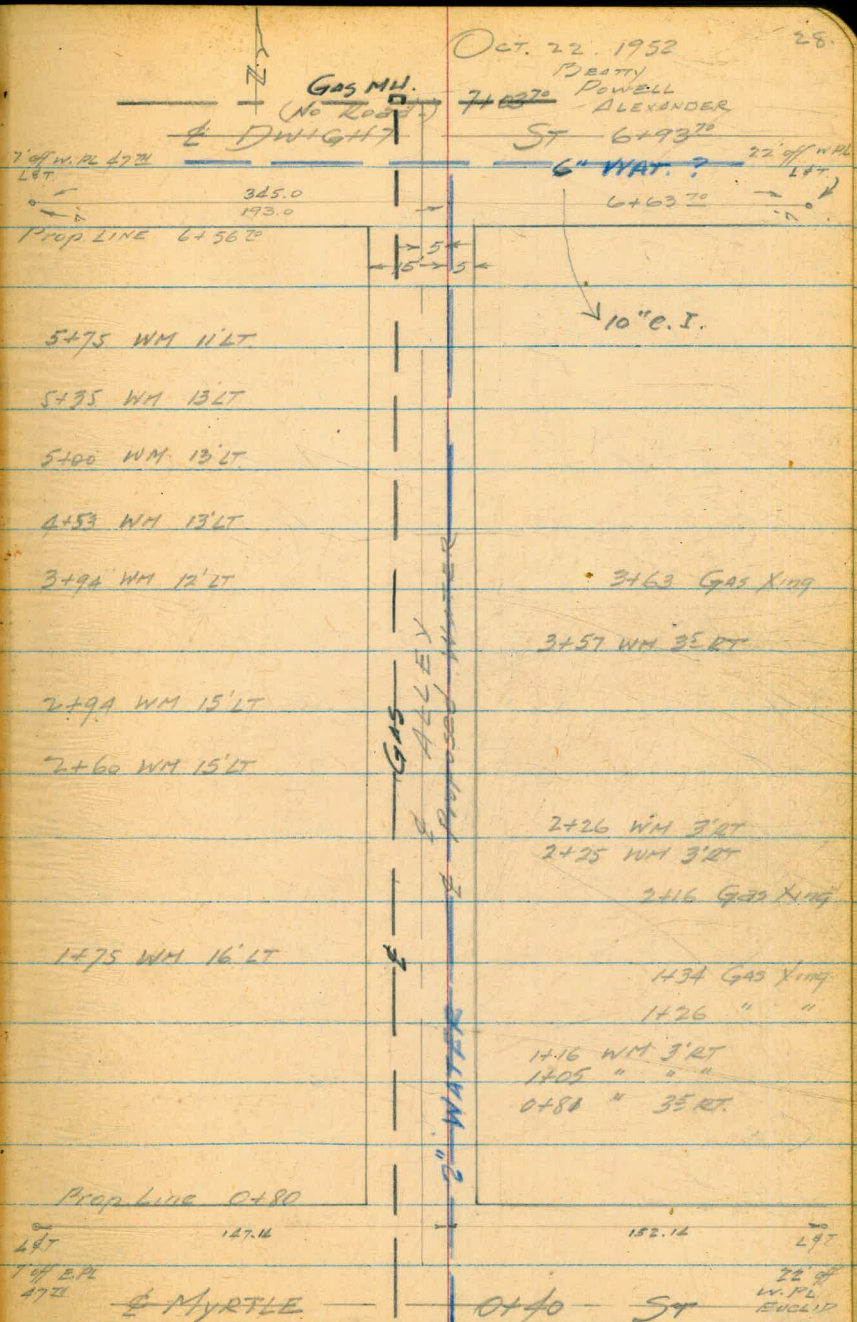 28
OCT. 22. 1952
BEATTY
POWELL
ALEXANDER
N
GAS MH.
7+03 70
(No Road)
℄ DWIGHT ST 6+93 70
7' off W. PL 47 TH
L&T
6" WAT. ?
22' off W PL
L&T
345.0
193.0
6+63 70
7'
7'
Prop LINE 6+56 70
5
15 5
10" C.I.
5+75 WM 11' LT
5+35 WM 13' LT
5+00 WM 13' LT
4+53 WM 13' LT
3+94 WM 12' LT
3+63 GAS Xing
3+57 WM 3 5 RT
2+94 WM 15' LT
2+60 WM 15' LT
℄ GAS
℄ ALLEY
℄ PROPOSED WATER
2+26 WM 3' RT
2+25 WM 3' RT
2+16 GAS Xing
1+75 WM 16' LT
1+34 GAS Xing
1+26 " "
1+16 WM 3' RT
1+05 " " "
0+81 " 3 5 RT.
2" WATER
Prop Line 0+80
147.14
152.14
L&T
7' off E. PL
47 TH
L&T
22' off
W. PL
EUCLID
℄ MYRTLE 0+40 ST